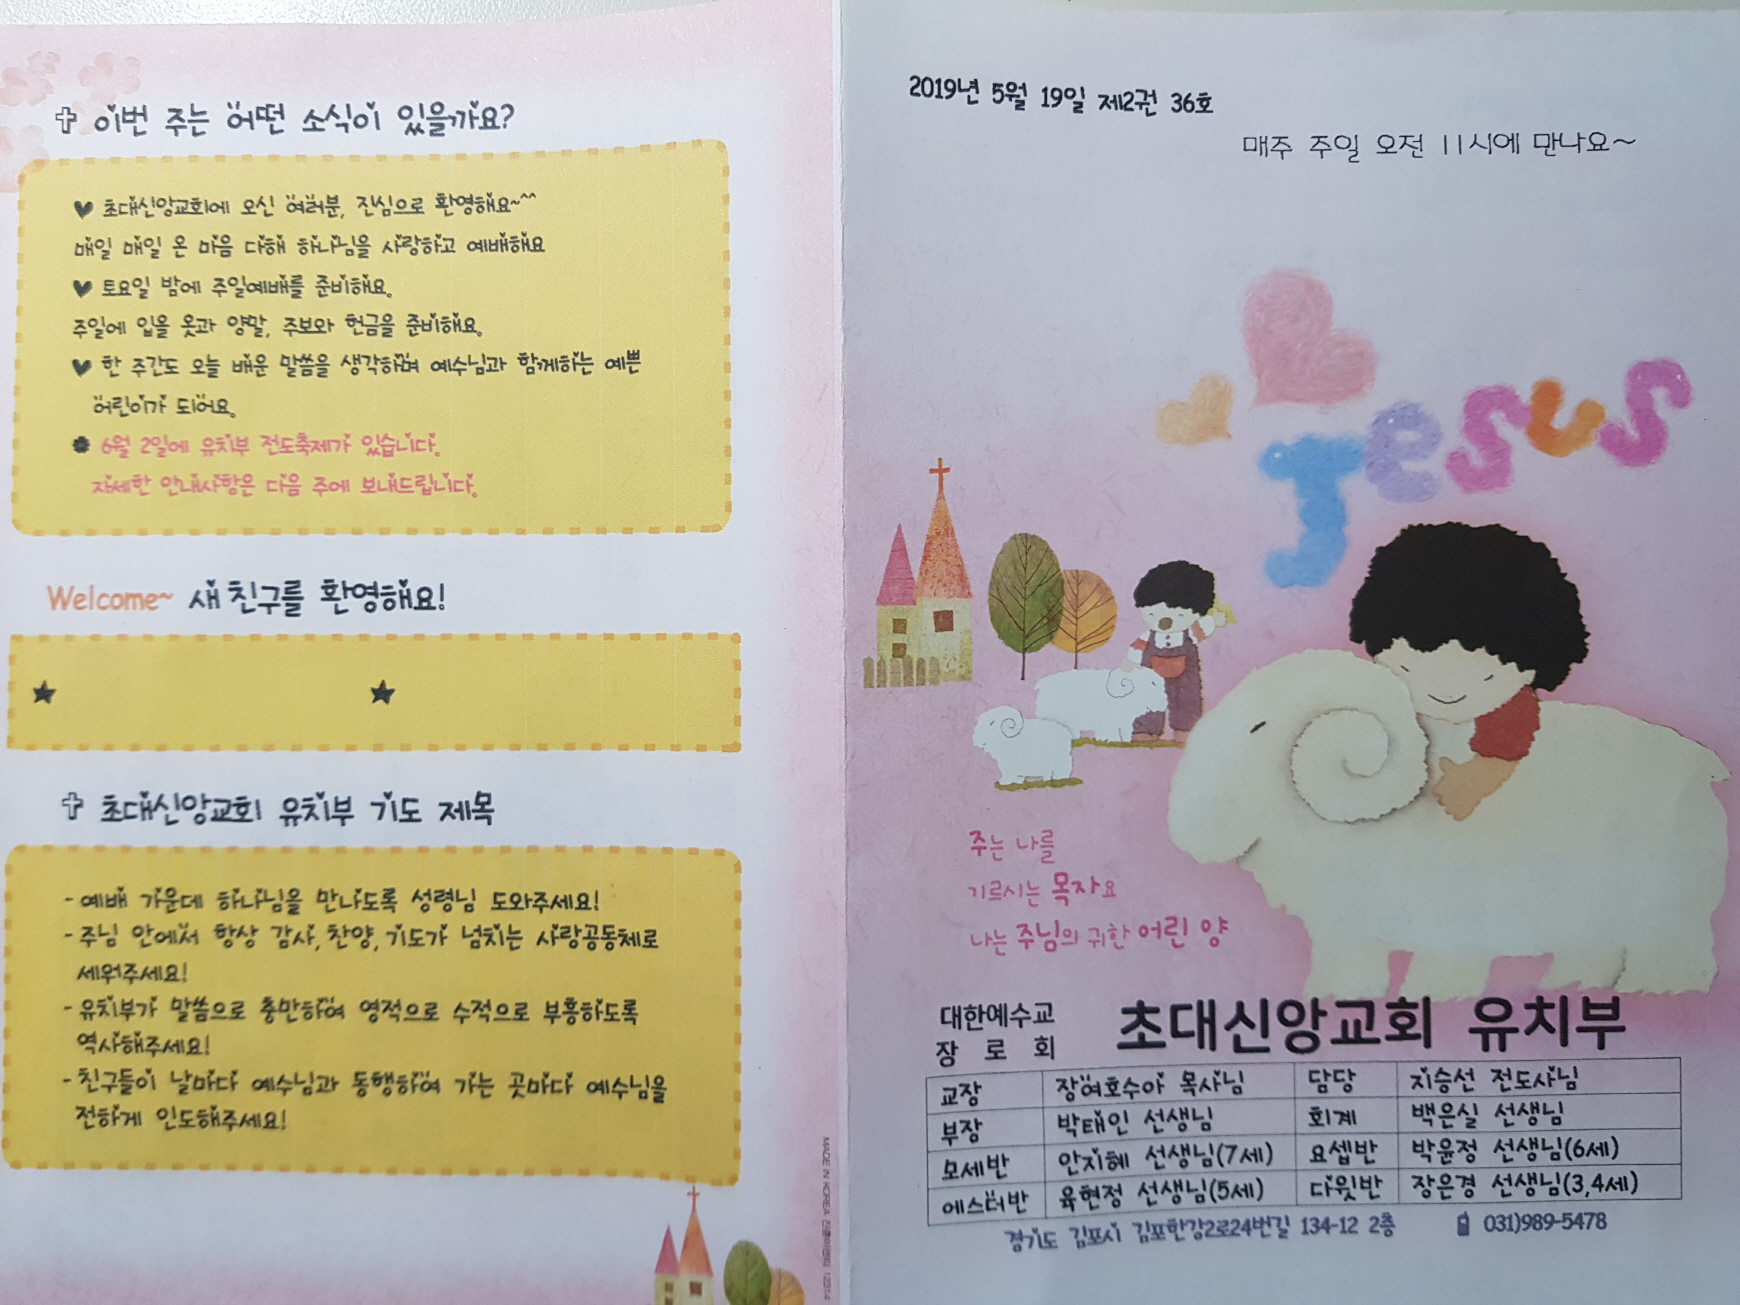 ✞ 이번 주는 어떤 소식이 있을까요?
♥ 초대신앙교회에 오신 여러분, 진심으로 환영해요~^^
매일 매일 온 마음 다해 하나님을 사랑하고 예배해요
♥ 토요일 밤에 주일예배를 준비해요.
주일에 입을 옷과 양말, 주보와 헌금을 준비해요.
♥ 한 주간도 오늘 배운 말씀을 생각하며 예수님과 함께하는 예쁜
어린이가 되어요.
6월 2일에 유치부 전도축제가 있습니다.
자세한 안내사항은 다음 주에 보내드립니다.
Welcome~ 새 친구를 환영해요!
★ ★
✞ 초대신앙교회 유치부 기도 제목
- 예배 가운데 하나님을 만나도록 성령님 도와주세요!
- 주님 안에서 항상 감사, 찬양, 기도가 넘치는 사랑공동체로
세워주세요!
- 유치부가 말씀으로 충만하여 영적으로 수적으로 부흥하도록
역사해주세요!
- 친구들이 날마다 예수님과 동행하여 가는 곳마다 예수님을
전하게 인도해주세요!
MADE IN KOREA
2019년 5월 19일 제2권 36호
매주 주일 오전 11시에 만나요~
Jesus
주는 나를
기르시는 목자요
나는 주님의 귀한 어린 양
대한예수교
장 로 회
초대신앙교회 유치부
교장 장여호수아 목사님 담당 지승선 전도사님
부장 박태인 선생님 회계 백은실 선생님
모세반 안지혜 선생님(7세) 요셉반 박윤정 선생님(6세)
에스더반 육현정 선생님(5세) 다윗반 장은경 선생님(3,4세)
경기도 김포시 김포한강2로24번길 134-12 2층 031)989-5478